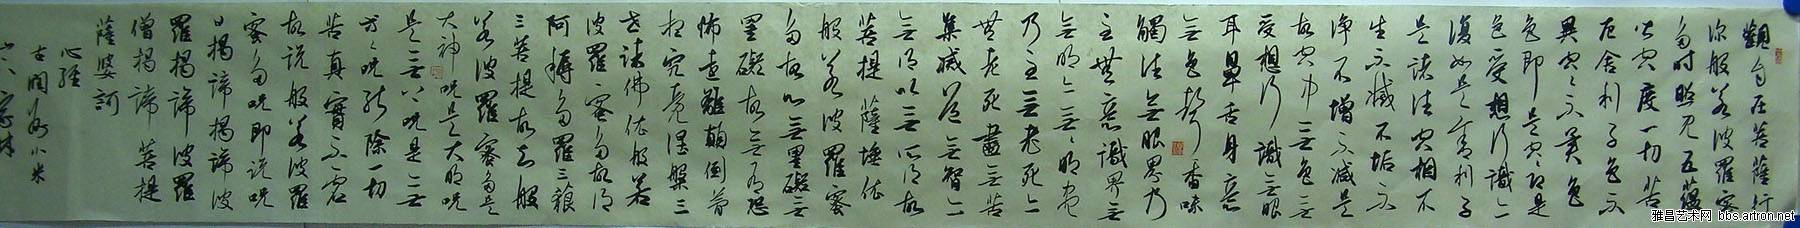 觀自在菩薩行
深般若波羅蜜
多時照見五蘊
皆空度一切苦
厄舍利子色不
異空空不異色
色即是空空即是
色受想行識亦
復如是舍利子
是諸法空相不
生不滅不垢不
淨不增不減是
故空中無色無
受想行識無眼
耳鼻舌身意
無色聲香味
觸法無眼界乃
至無意識界無
無明亦無無明盡
乃至無老死亦
無老死盡無苦
集滅道無智亦
無得以無所得故
菩提薩埵依
般若波羅蜜
多故心無罣礙無
罣礙故無有恐
怖遠離顛倒夢
想究竟涅槃三
世諸佛依般若
波羅蜜多故得
阿耨多羅三藐
三菩提故知般
若波羅蜜多是
大神咒是大明咒
是無上咒是無
等等咒能除一切
苦真實不虛
故說般若波羅
蜜多咒即說咒
曰揭諦揭諦波
羅揭諦波羅
僧揭諦菩提
薩婆訶
心經
雅昌艺术网 bbs.artron.net